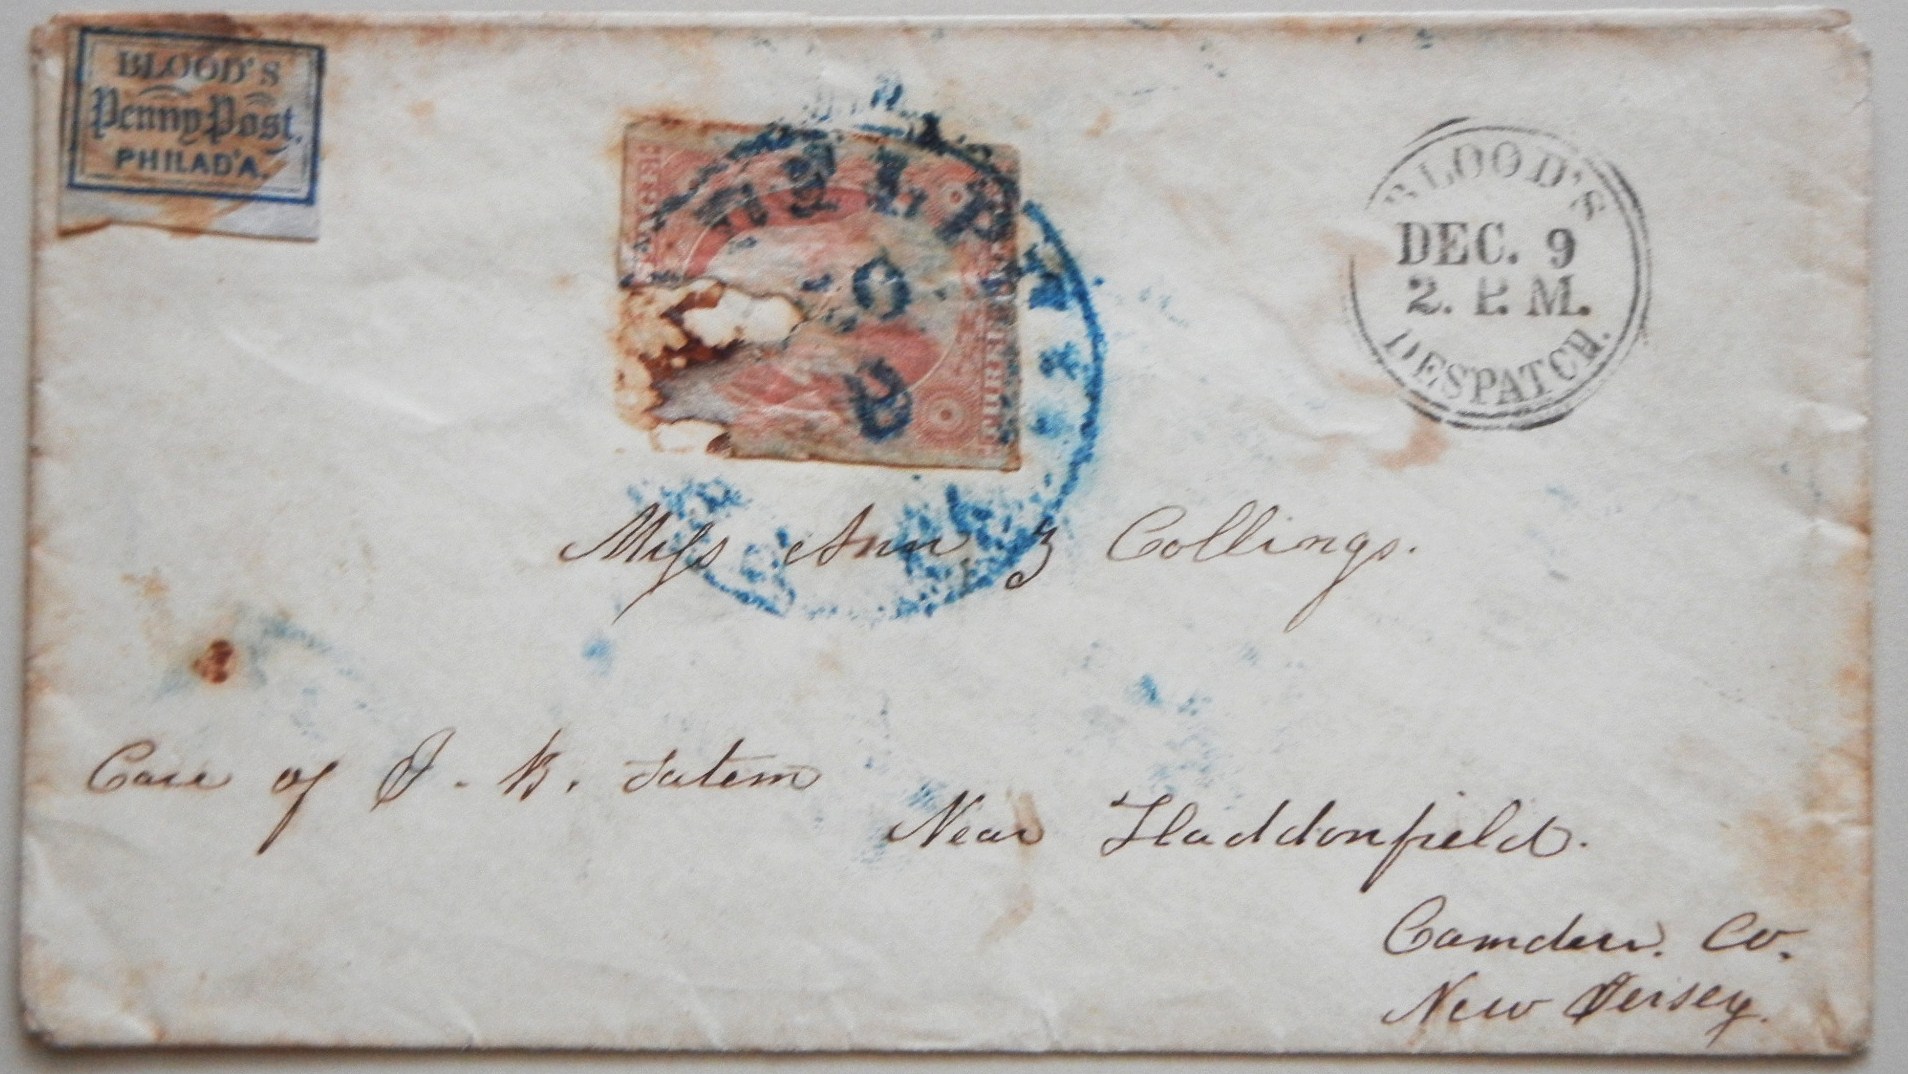 BLOOD'S
Penny Post.
PHILAD'A.
BLOOD'S
DEC. 9
2. P. M.
DESPATCH.
Miss Ann Z Collings.
Care of J. B. Tatem
Near Haddonfield.
Camden. Co.
New Jersey.